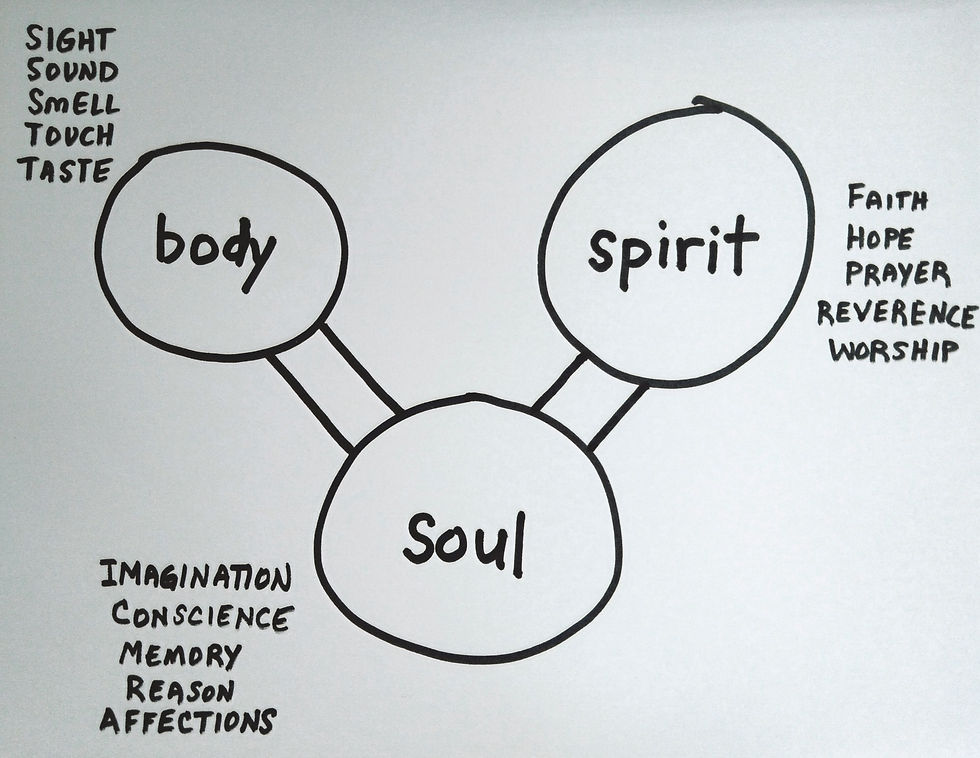 SIGHT
SOUND
SMELL
TOUCH
TASTE
body
spirit
FAITH
HOPE
PRAYER
REVERENCE
WORSHIP
Soul
IMAGINATION
CONSCIENCE
MEMORY
REASON
AFFECTIONS